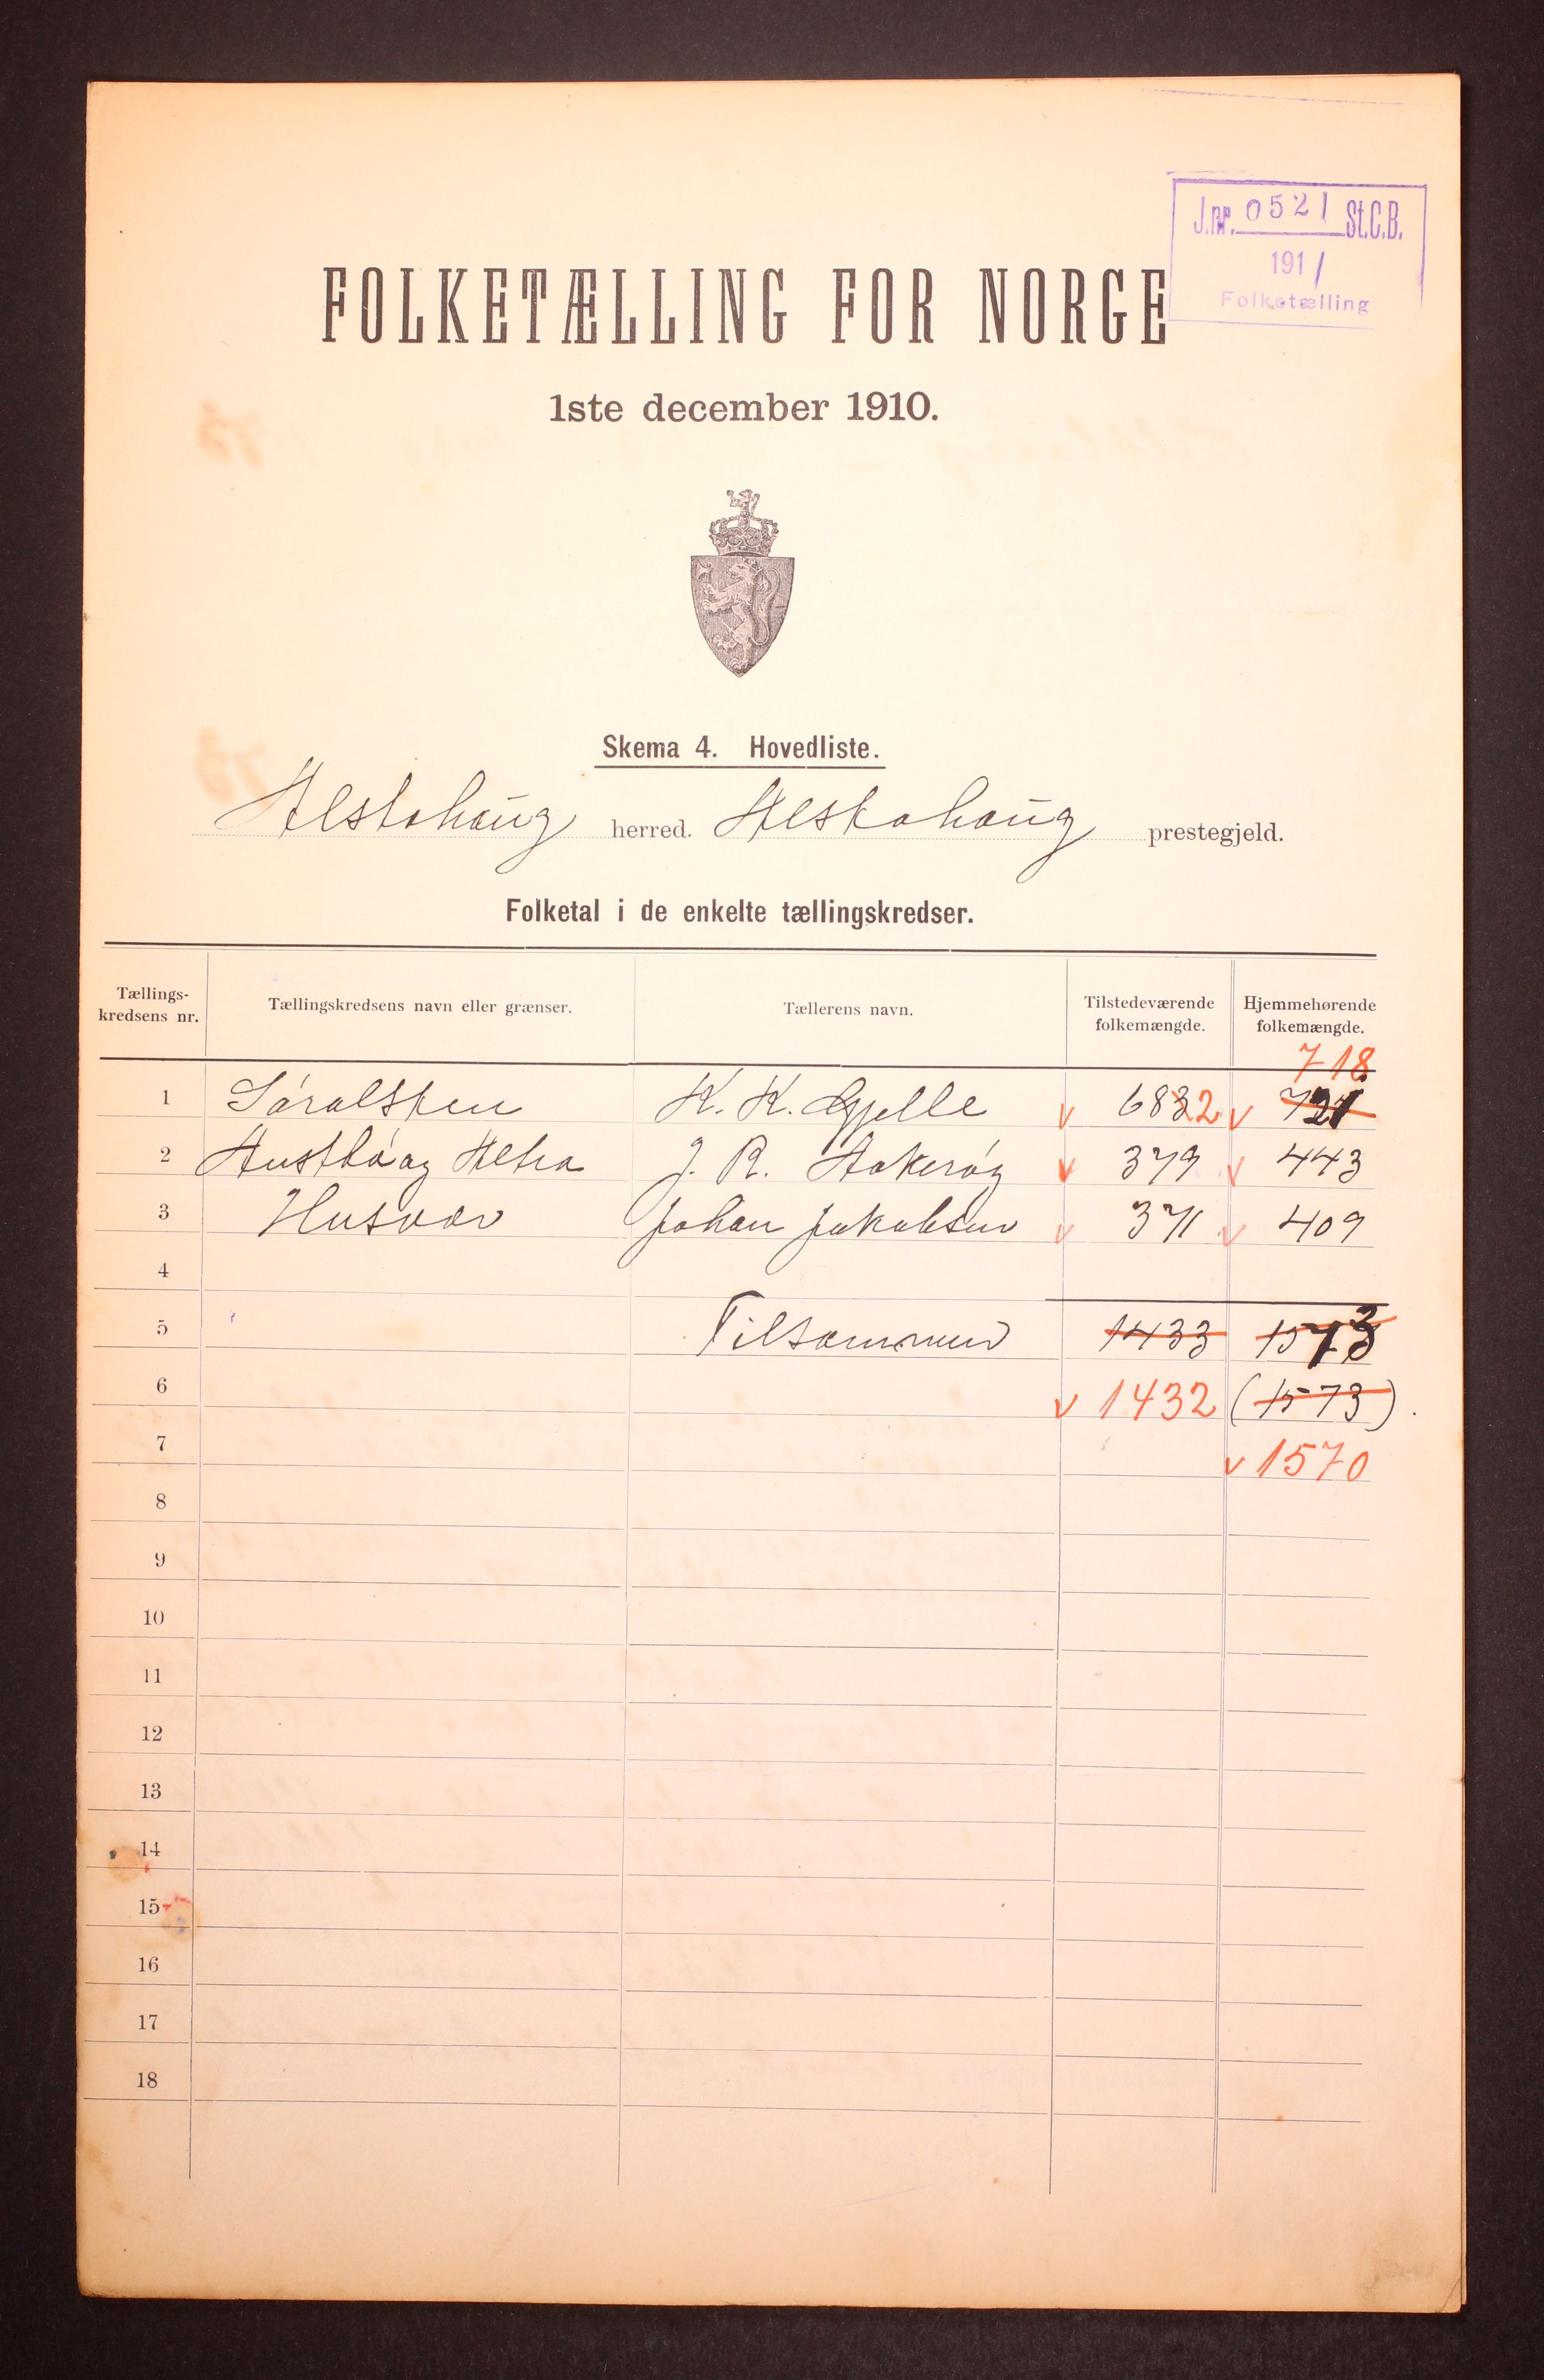 J.nr. 0521 St.C.B.
1911
Folketælling
FOLKETÆLLING FOR NORGE
1ste december 1910.
Skema 4. Hovedliste.
Alstahaug herred. Alstahaug prestegjeld.
Folketal i de enkelte tællingskredser.
Tællings-kredsens nr. Tællingskredsens navn eller grænser. Tællerens navn. Tilstedeværende folkemængde. Hjemmehørende folkemængde.
718
1 Søralsten K. K. 682 721
2 Austbø og Altra J. R. Aakerøy 379 443
3 Husvær Johan Jakobsen 371 409
4
5 Tilsammen 1433 1573
6 1432 (1573)
7 1570
8
9
10
11
12
13
14
15
16
17
18